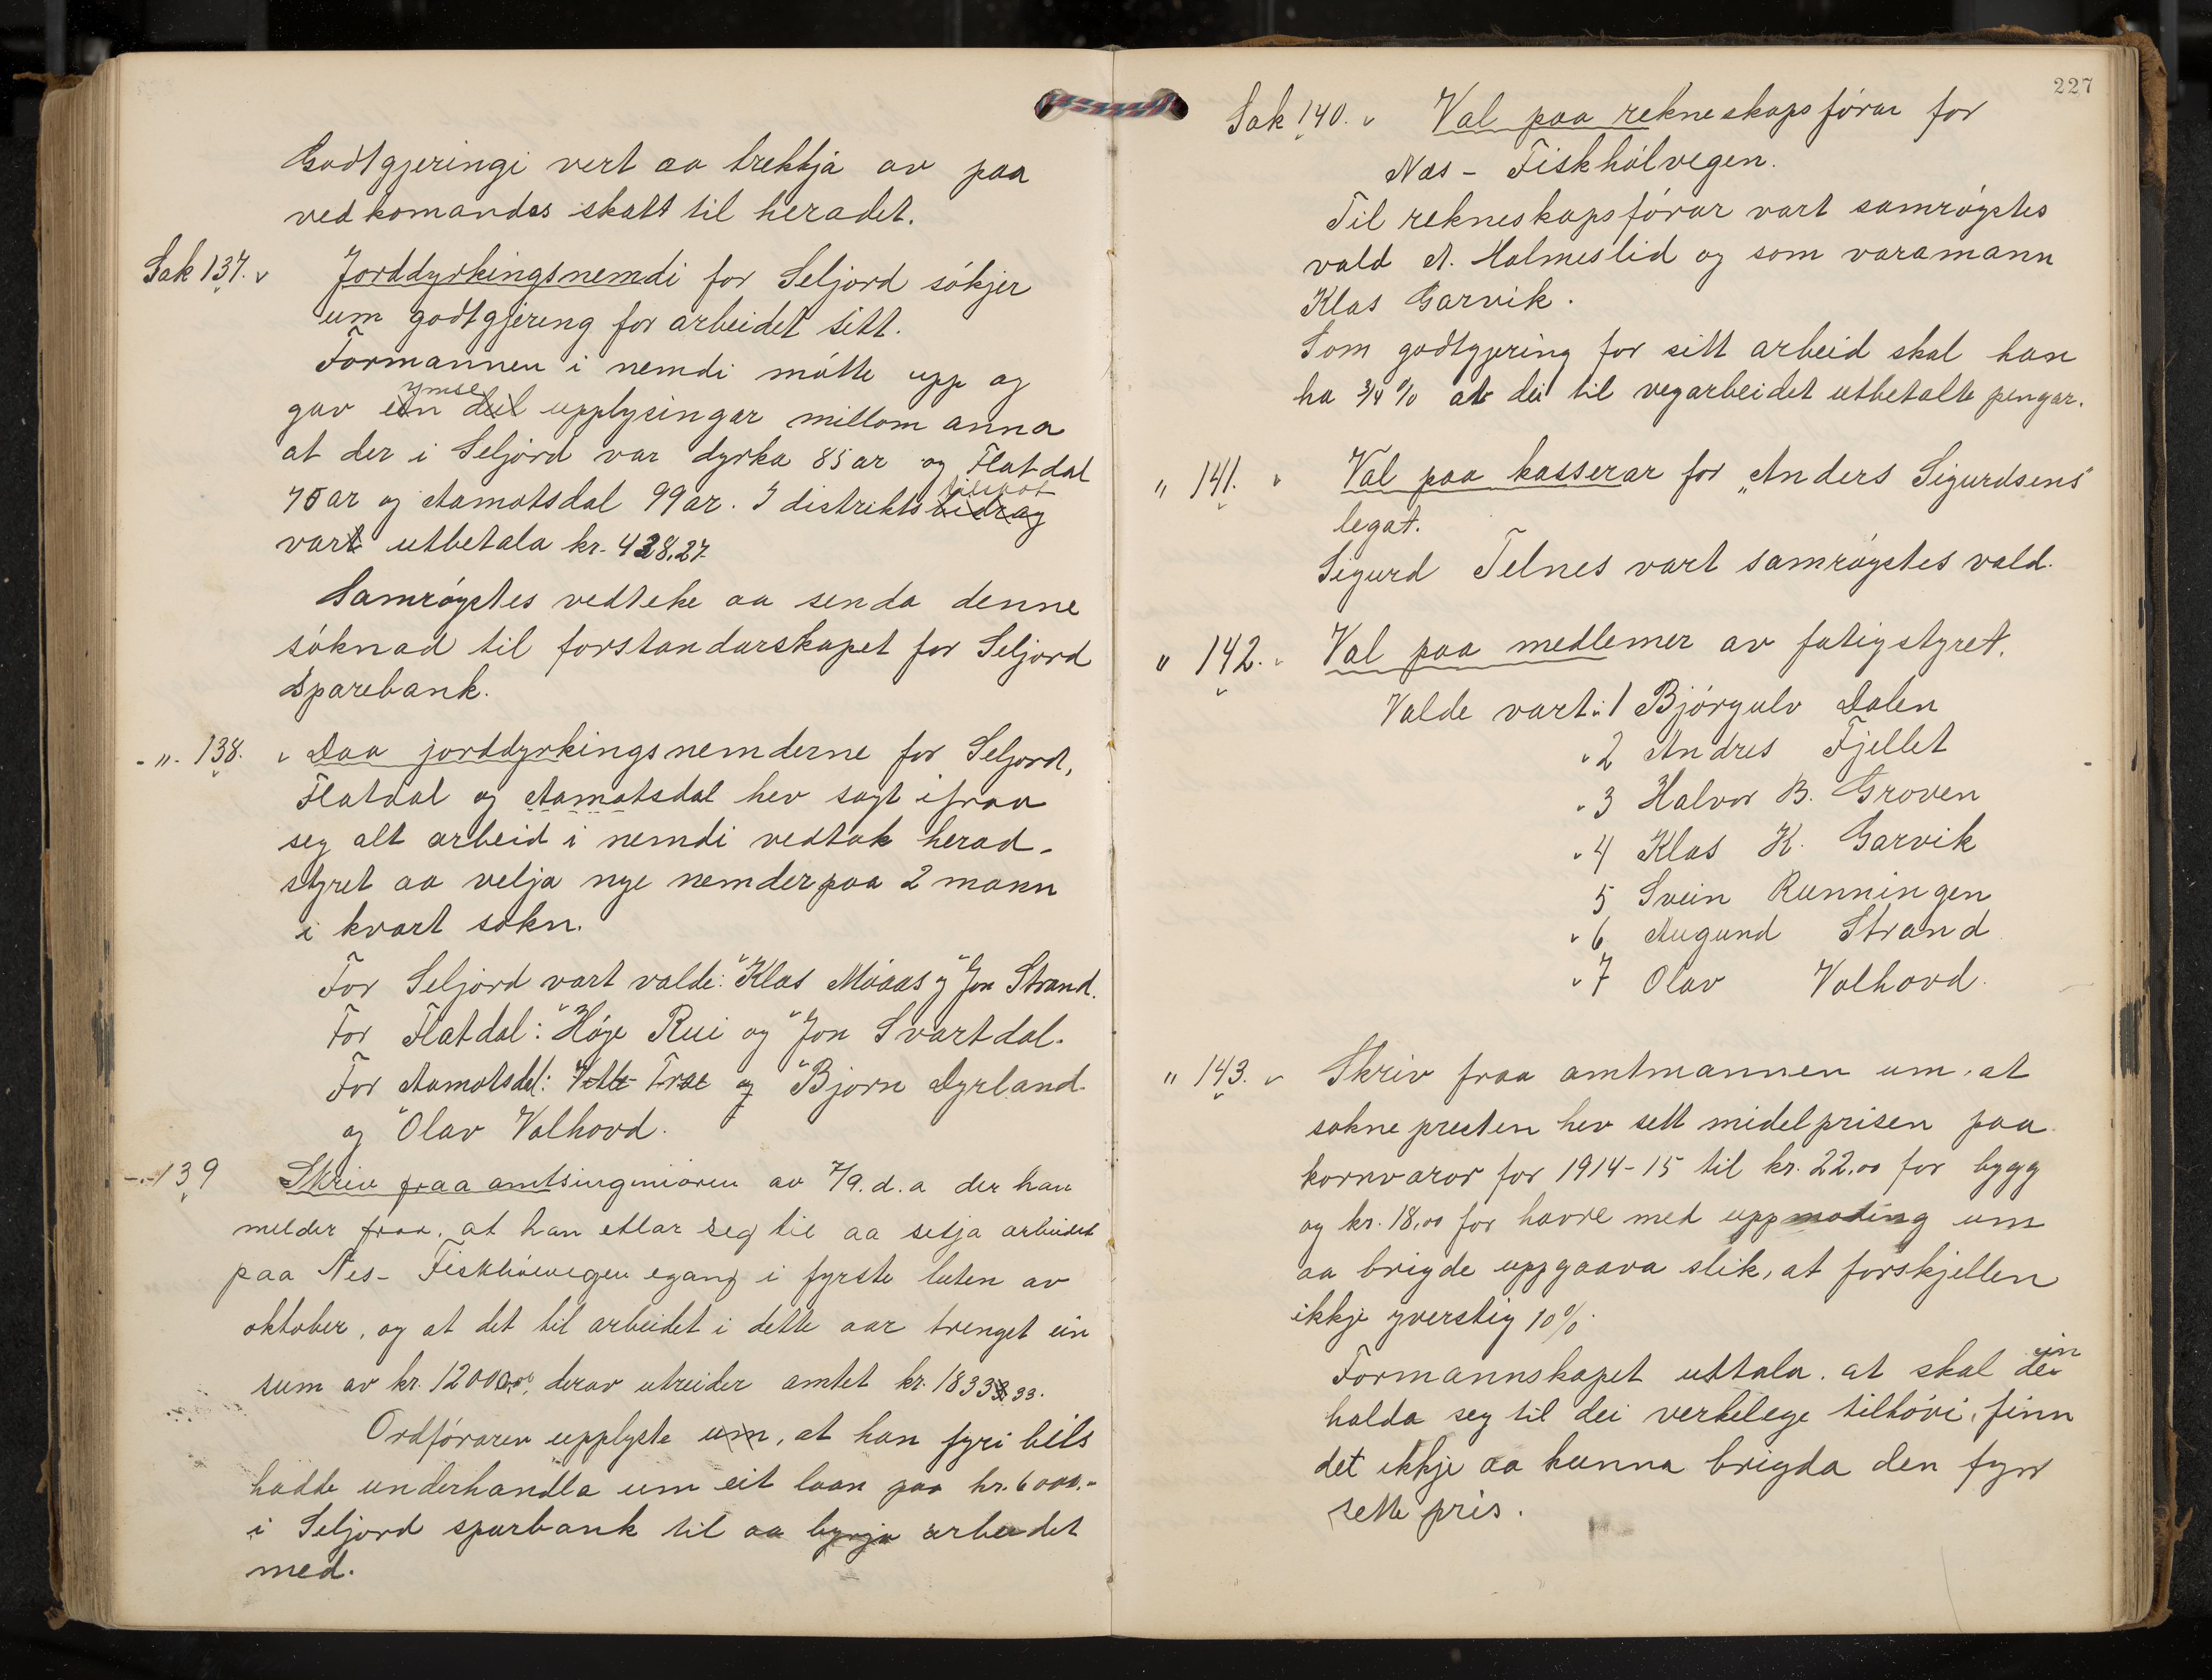 Godtgjeringi vert aa trekkja av paa
vedkomandes skatt til heradet.
Sak 137. Jorddyrkingsnemdi for Seljord sókjer
um godtgjering for arbeidet sitt.
Formannen i nemdi mótte upp og
ymse
gav ein del upplysingar millom anna
at der i Seljord var dyrka 85 ar og Flatdal
tilskot
75 ar og Aamotsdal 99 ar. I distrikts bidrag
vart utbetala kr. 428,27.
Samróystes vedteke aa senda denne
sóknad til forstandarskapet for Seljord
Sparebank.
-"- 138. Daa jorddyrkingsnemderne for Seljord,
Flatdal og Aamotsdal hev sagt ifraa
seg alt arbeid i nemdi vedtok herad-
styret aa velja nye nemder paa 2 mann
i kvart sokn.
For Seljord vart valde: Klas Móaas og Jon Strand.
For Flatdal: Hóye Rui og Jon Svartdal.
For Aamotsdal: Vetle Trae og Bjorn Dyrland
og Olav Valhovd.
-"- 139 Skriv fraa amtsingeniören av 7/9. d.a der han
melder fraa, at han etlar seg til aa setja arbeidet
paa Nes- Fiskhólvegen igang i fyrste luten av
oktober, og at det til arbeidet i dette aar trenget ein
sum av kr. 12000,00, derav utreider amtet kr. 1833,33.
Ordfóraren upplyste um, at han fyri bils
hadde underhandla um eit laan paa kr. 6000.-
i Seljord sparbank til aa byrja arbeidet
med.
227
Sak 140. Val paa rekneskapsfórar for
Nas - Fiskhólvegen.
Til rekneskapsfórar vart samróystes
vald A. Holmeslid og som varamann
Klas Garvik.
Som godtgjering for sitt arbeid skal han
ha 3/4 % at dei til vegarbeidet utbetalte pengar.
" 141. Val paa kasserar for "Anders Sigurdsens"
legat.
Sigurd Telnes vart samróystes vald.
" 142. Val paa medlemer av fatigstyret.
Valde vart: 1 Bjórgulv Dalen
2 Andres Fjellet
3 Halvor B. Groven
4 Klas K. Garvik
5 Svein Runningen
6 Augund Strand
7 Olav Valhovd.
" 143. Skriv fraa amtmannen um, at
sokneprecten hev sett midelprisen paa
kornvaror for 1914-15 til kr. 22,00 for bygg
og kr. 18,00 for havre med uppmoding um
aa brigde uppgaava slik, at forskjellen
ikkje yverstig 10%.
ein
Formannskapet uttala. at skal dei
halda seg til dei verkelege tilhóvi, finn
det ikkje aa kunna brigda den fyrr
sette pris.